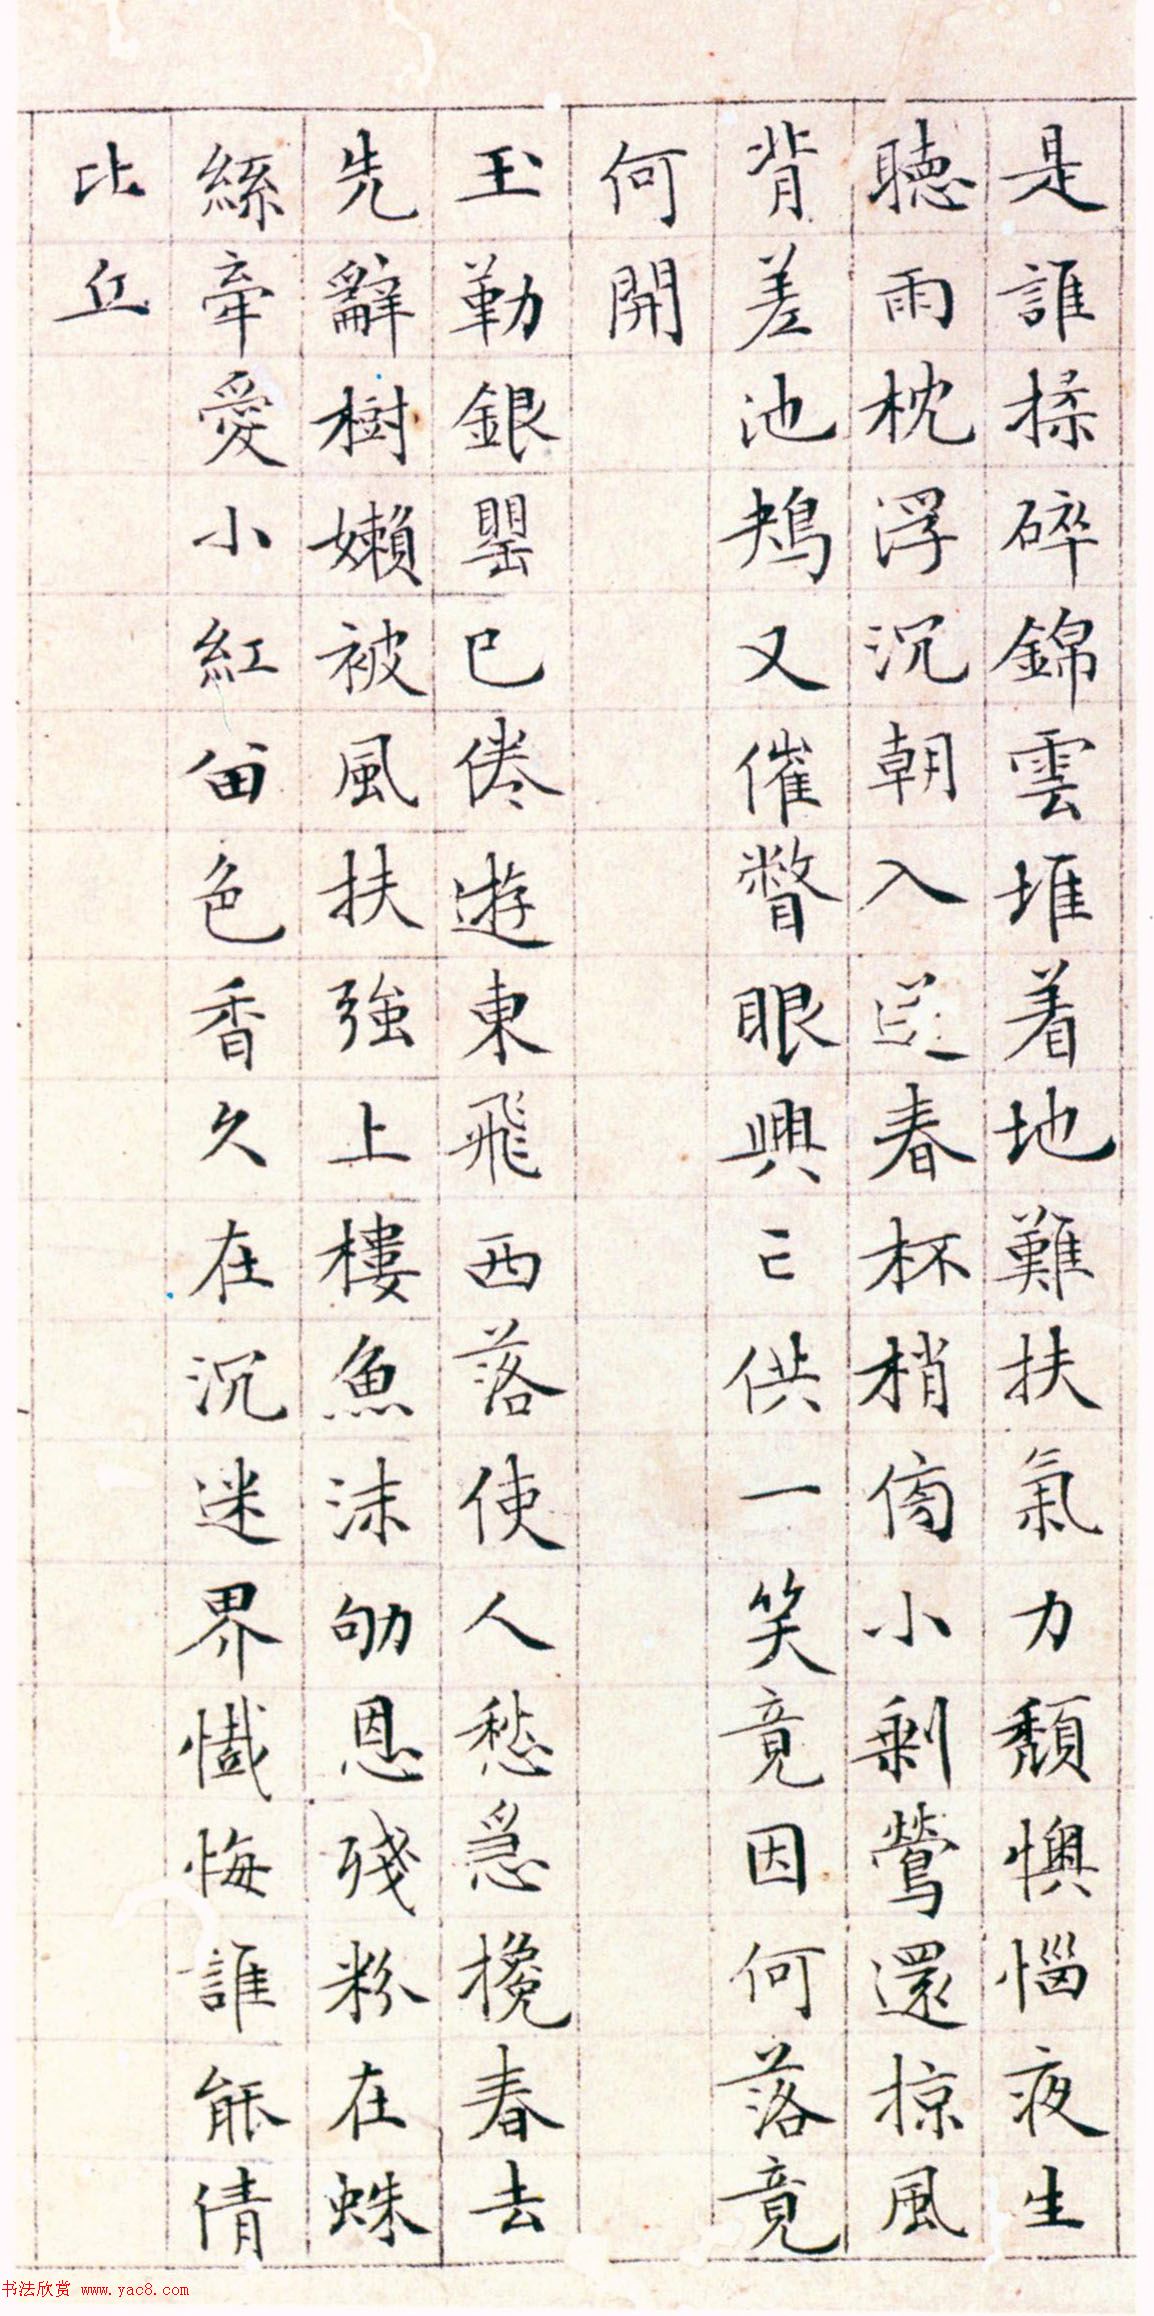 是誰揉碎錦雲堆着地難扶氣力頹懊惱夜生
聽雨枕浮沉朝入送春杯梢傍小剩鶯還掠風
背差池鴂又催瞥眼興亡供一笑竟因何落竟
何開
玉勒銀罌已倦遊東飛西落使人愁急攙春去
先辭樹嬾被風扶強上樓魚沫劬恩殘粉在蛛
絲牽愛小紅留色香久在沉迷界懺悔誰能倩
比丘
书法欣赏 www.yac8.com